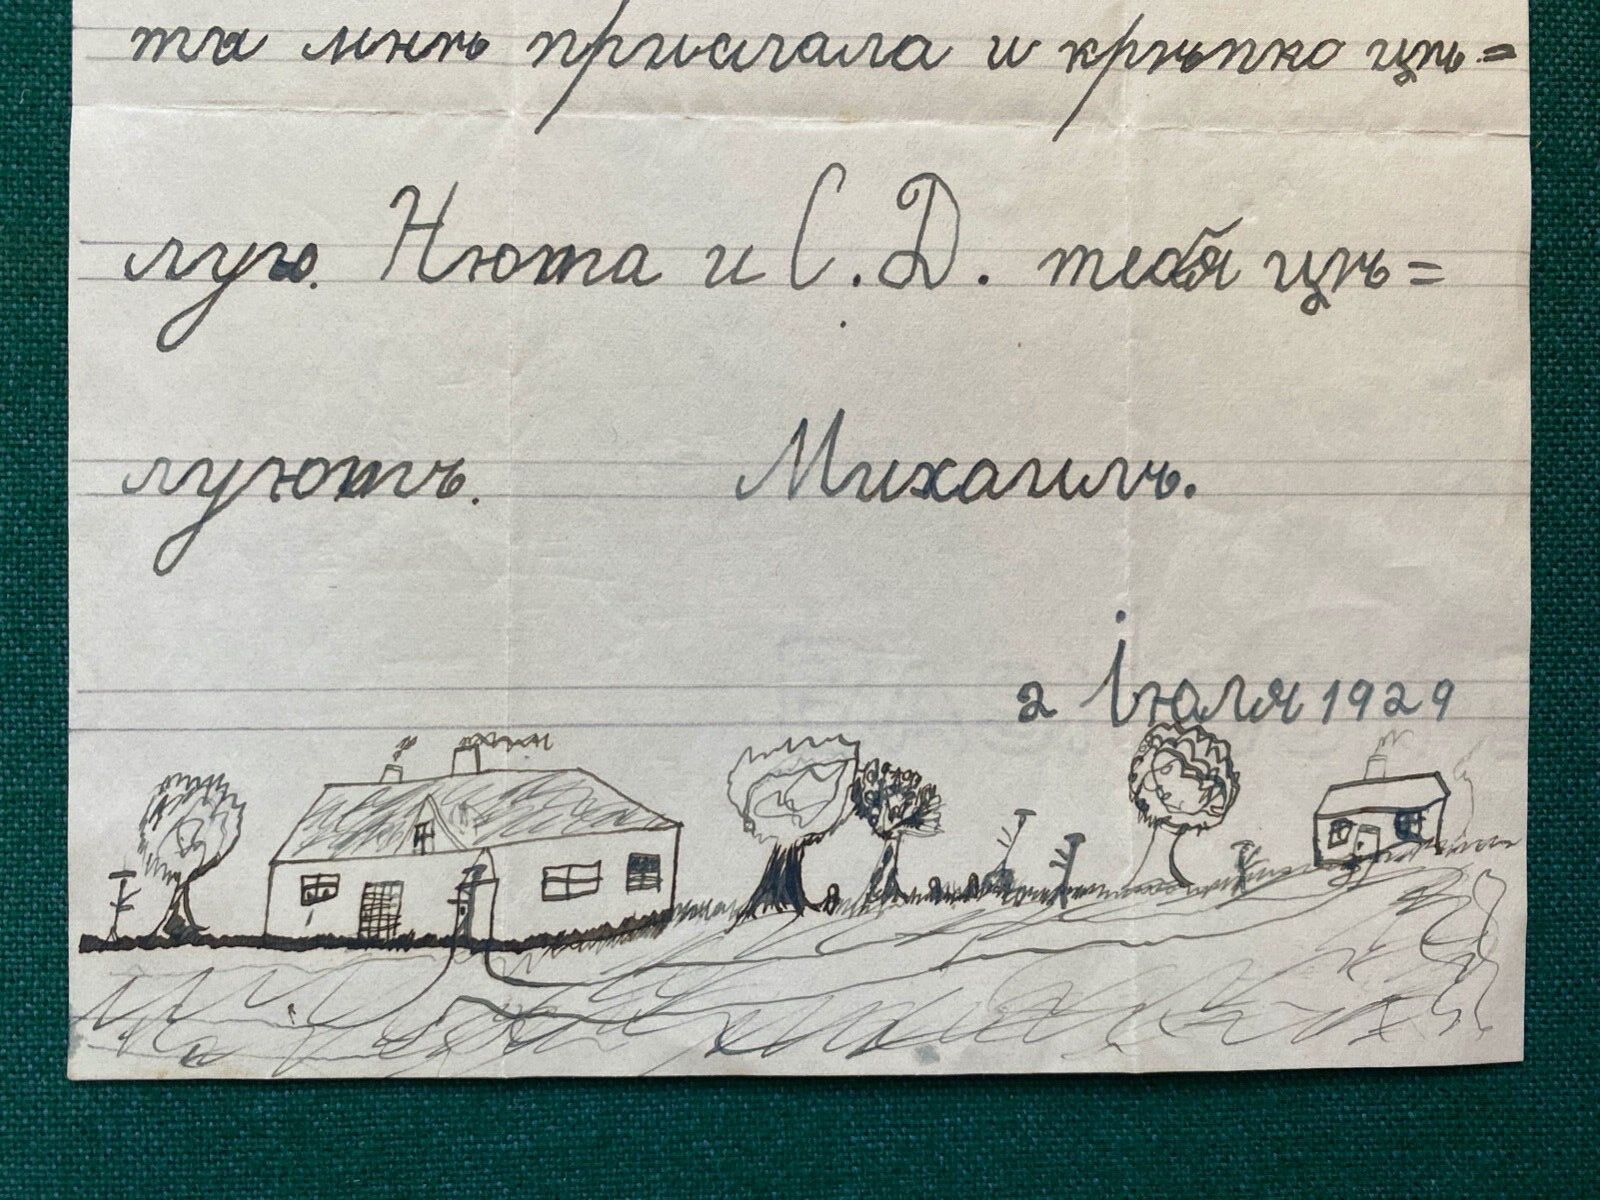 ты мнѣ прислала и крѣпко цѣ=
лую. Нюта и С. Д. тебя цѣ=
луютъ. Михаилъ.
2 Іюля 1929